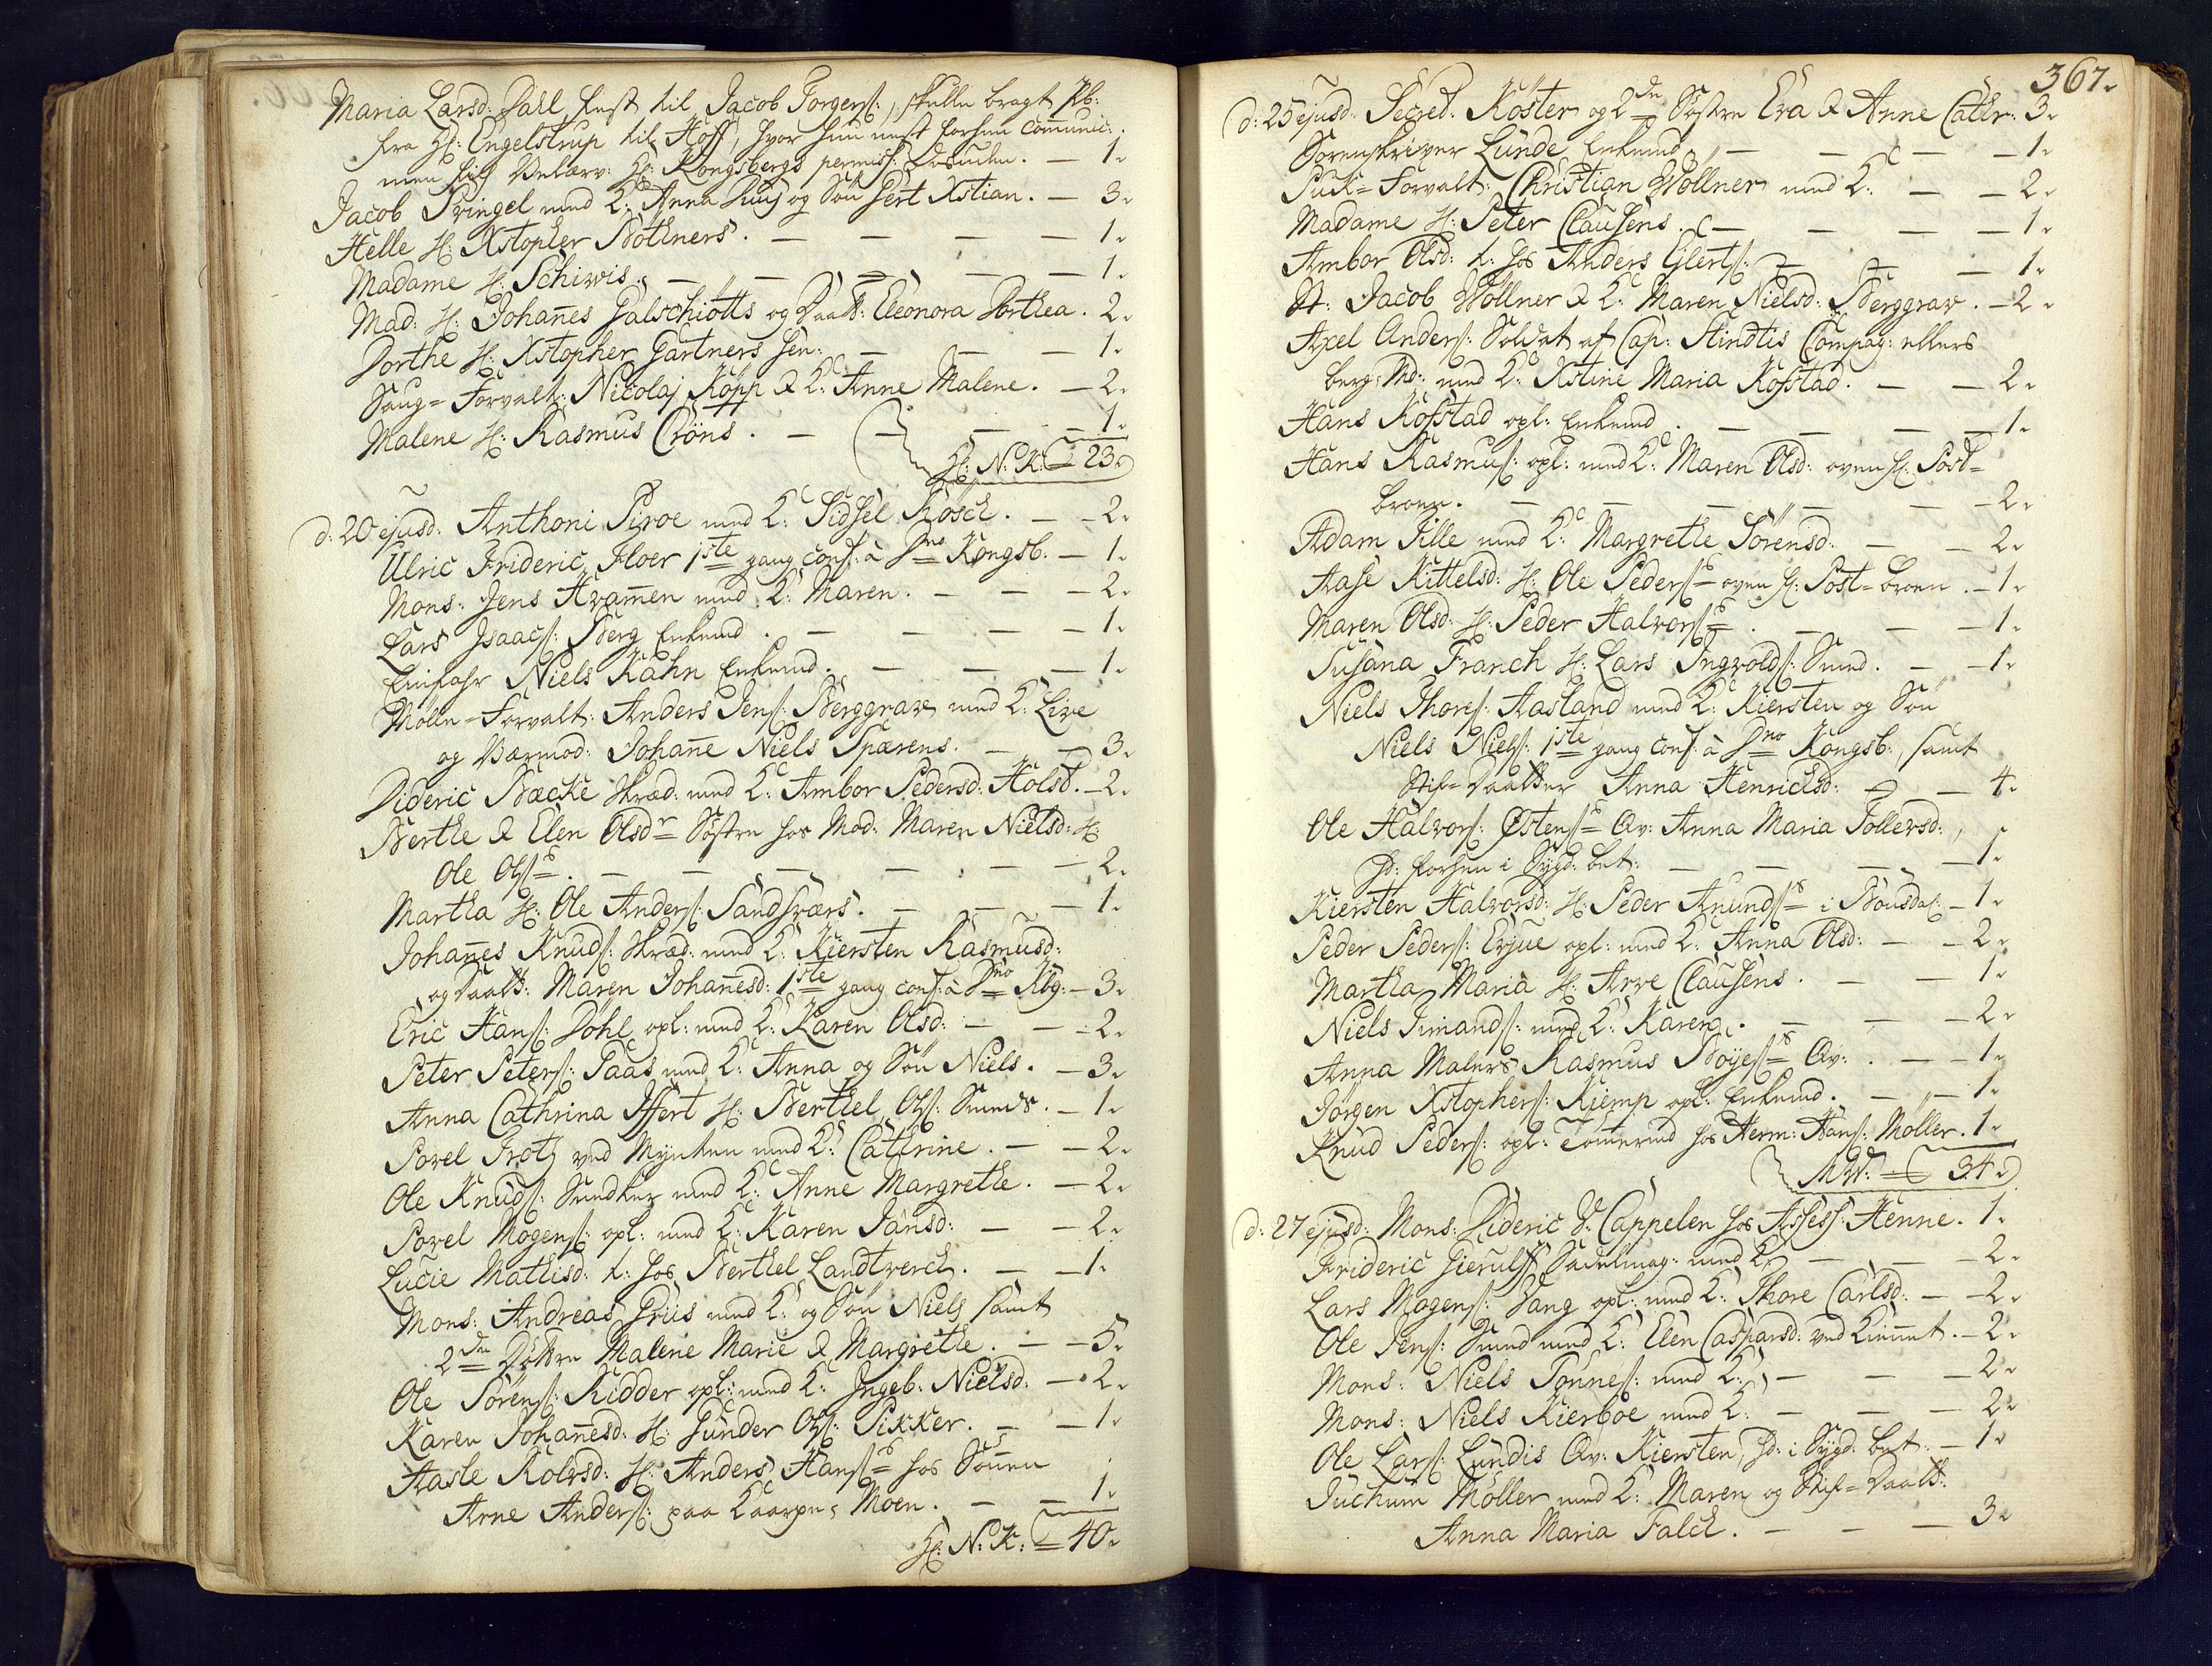 Maria Larsd: Dall fest til Jacob Jorgens:, skulle bragt Skb:
fra Hr: Engelstrup til Hoff, hvor hun nest forhen communic:
men fik Velærv: Hr: Kongsbergs permiss: desuden. — 1.
Jacob Pringel med K: Anna Huus og Søn Gert Xstian. — 3.
Helle H: Xstopher Bothners. — — — — 1.
Madame H: Schiwis. — — — — 1.
Mad: H: Johanes Galschiøtts og Daatt: Eleonora Dorthea. 2.
Dorthe H: Xstopher Gartners Sen: — — — 1.
Saug-Forvalt: Nicolaj Kopp & K: Anne Malene. — 2.
Malene H: Rasmus Crøns. — — — 1.
Hr: N: K: — 23.
d: 20 ejusd: Anthoni Piroe med K: Sidsel Kosch. — 2.
Ulric Frideric Floer 1ste gang conf: à Dno Kongsb. — 1.
Mons: Jens Hramen med K: Maren. — — 2.
Lars Isaacs: Berg Enkemd. — — — 1.
Einfahr Niels Kahn Enkemd. — — — 1.
Mølle-Forvalt: Anders Jens: Berggrav med K: Live
og Værmod: Johane Niels Spærens. — — 3.
Dideric Bæcke Skræd: med K: Ambor Pedersd: Holst. — 2.
Berthe & Elen Olsdr Søstre hos Mod: Maren Nielsd: H:
Ole Ols. — — — — — 2.
Martha H: Ole Anders: Sandsværs. — — — 1.
Johanes Knuds: Skræd: med K: Kiersten Rasmusd:
og Daatt: Maren Johanesd: 1ste gang conf: à Dno Kbg: — 3.
Eric Hans: Dohl opl: med K: Karen Olsd: — — 2.
Peter Peters: Paas med K: Anna og Søn Niels. — 3.
Anna Cathrina Iffert H: Berthel Ols: Smeds. — 1.
Povel Trotz ved Mynten med K: Cathrine. — — 2.
Ole Knuds: Snedker med K: Anne Margrethe. — 2.
Povel Mogens: opl: med K: Karen Jansd: — — 2.
Lucie Mathisd: t: hos Berthel Landtverch. — — 1.
Mons: Andreas Griis med K: og Søn Niels samt
2de Døttre Malene Marie & Margrethe. — — 5.
Ole Sørens: Ridder opl: med K: Ingeb: Nielsd: — 2.
Karen Johanesd: H: Gunder Ols: Pikker. — — 1.
Aaste Rolvsd: H: Anders Hans: hos Sønnen
Arne Anders: paa Kaarpes Moen. — — 1.
Hr: N: K: — 40.
367.
d: 25 ejusd: Secret: Køster og 2de Søstre Eva & Anne Cathr: 3.
Sorenskriver Lunde Enkemd. — — — — 1.
Puk-Forvalt: Christian Wøllner med K: — — 2.
Madame H: Peter Clausens. — — — — 1.
Ambor Olsd: t: hos Anders Ejlerts: — — — 1.
St: Jacob Wøllner & K: Maren Nielsd: Berggrav. — 2.
Axel Anders: Soldat af Cap: Stindtis Compag: ellers
berg-Md: med K: Xstine Maria Kofstad. — — 2.
Hans Kofstad opl: Enkemd. — — — — 1.
Hans Rasmus: opl: med K: Maren Olsd: oven f: Post-
broen. — — — — — 2.
Adam Tille med K: Margrethe Sørensd: — — 2.
Aase Kittelsd: H: Ole Peders: oven f: Post-broen. — 1.
Maren Olsd: H: Peder Halvors: — — — 1.
Susana Franch H: Lars Ingvolds: Smed. — — 1.
Niels Thores: Aasland med K: Kiersten og Søn
Niels Niels: 1ste gang conf: à Dno Kongsb:, samt
Stif-Daatter Anna Henrichsd: — — 4.
Ole Halvors: Østens: Qv: Anna Maria Tollevsd:,
Sd: forhen i Sygd: bet: — — — — 1.
Kiersten Halvorsd: H: Peder Anunds: i Bousdal: — 1.
Peder Peders: Erjue opl: med K: Anna Olsd: — — 2.
Martha Maria H: Arve Clausens. — — 1.
Niels Imands: med K: Karen. — — — 2.
Anna Malers Rasmus Bøyes: Qv: . — — 1.
Jørgen Xstophers: Kiemp opl: Enkemd. — — 1.
Knud Peders: opl: Tømermd hos Herm: Hans: Møller. 1.
MW: — 34.
d: 27 ejusd: Mons: Dideric v: Cappelen hos Assess: Henne. 1.
Frideric Gierulff Sadelmag: med K: — — — 2.
Lars Mogens: Vang opl: med K: Thore Carlsd: — — 2.
Ole Jens: Smed med K: Elen Caspersd: ved Kiennet. — 2.
Mons: Niels Tønnes: med K: — — — 2.
Mons: Niels Kierboe med K: — — — 2.
Ole Lars: Lundis Qv: Kiersten, Sd: i Sygd: bet: — 1.
Juchum Møller med K: Maren og Stif-Daatt:
Anna Maria Falch. — — — 3.